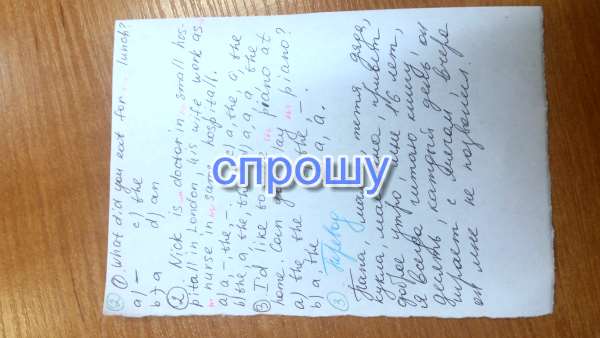 ② ① What did you eat for ... lunch?
a) – c) the
b) a d) an
② Nick is ... doctor in ... small hos-
pitall in London, his wife work as
... nurse in ... same hospitall.
a) a, –, the, –. c) a, the, a, the
b) the, a, the, d) a, a, a, the
③ I'd like to ... piano at
home. Can you play ... piano?
a) the, the the, –.
b) a, the a, a.
③ Перевод
Папа, мама, тетя, дядя,
кукла, привет
доброе утро, мне 16 лет,
я всегда читаю книгу,
десять, каждый день, он
играет с вчера
мне не позвонил.
спрошу